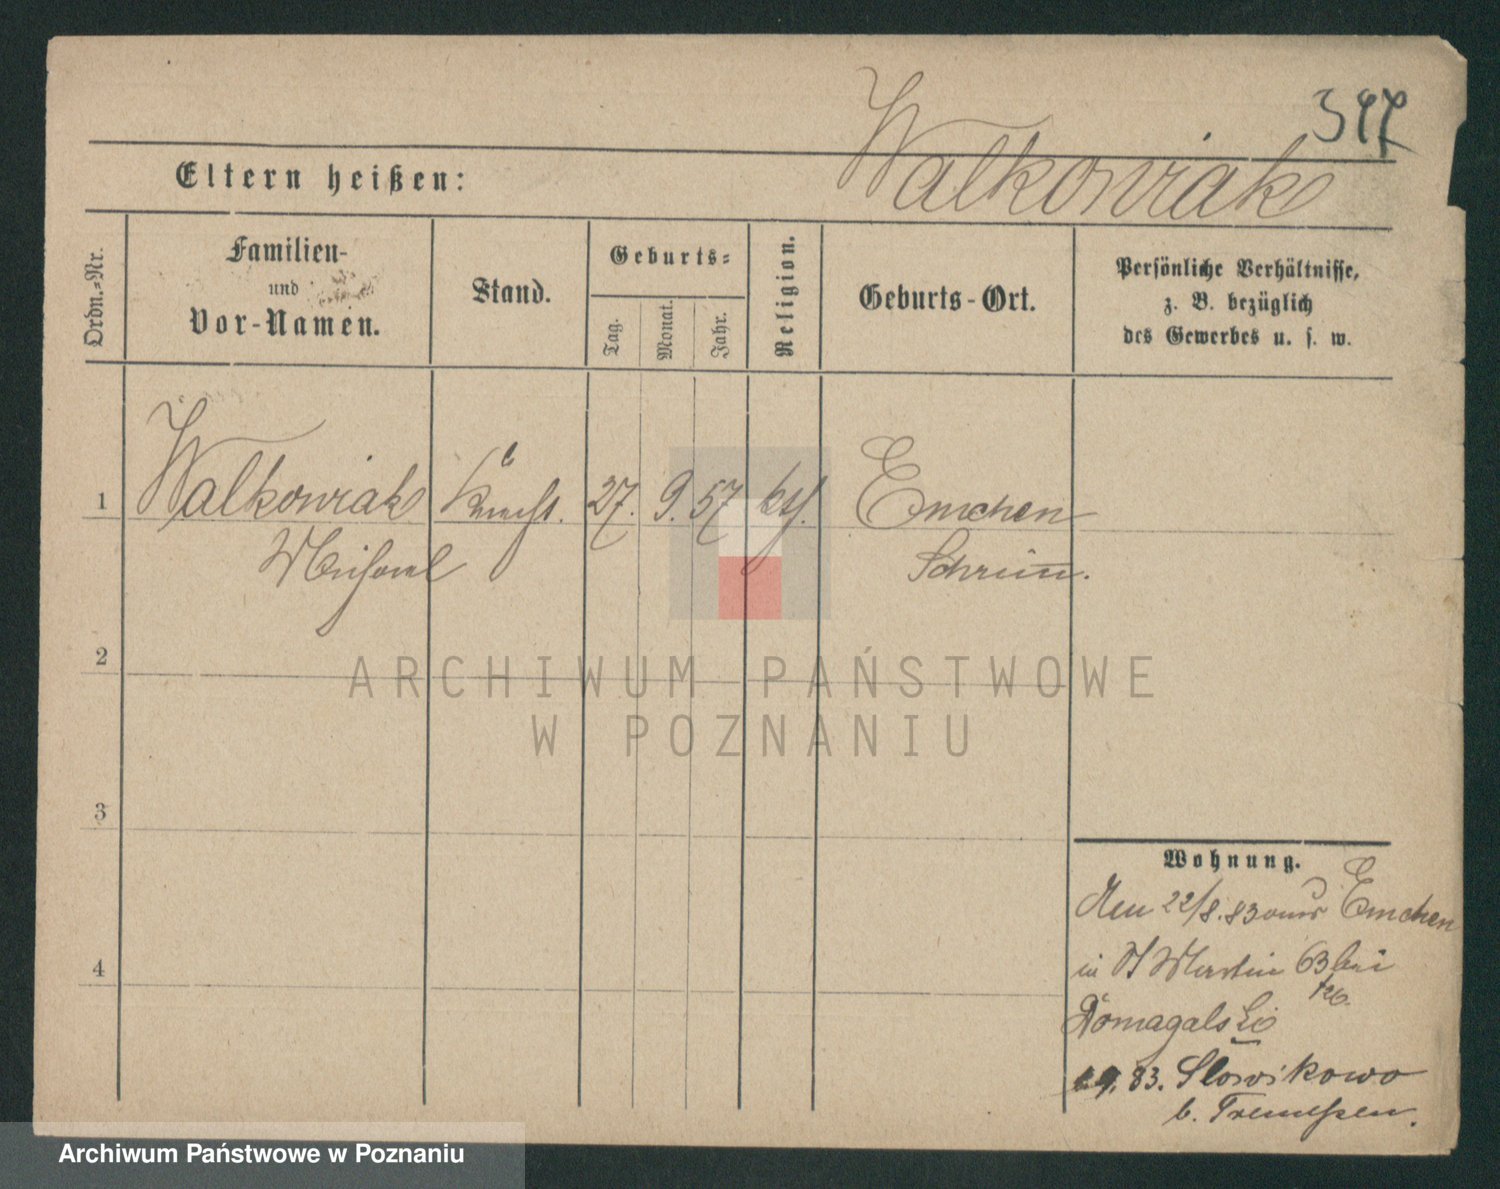 397
Walkowiak
Eltern heißen:
Ordn.-Nr.
Familien-
und
Vor-Namen.
Stand.
Geburts-
Tag.
Monat.
Jahr.
Religion.
Geburts-Ort.
Persönliche Verhältnisse,
z. B. bezüglich
des Gewerbes u. s. w.
1
Walkowiak Knecht. 27. 9. 57 kth. Emchen
Michael Schrim̄.
2
3
4
Wohnung.
Den 22/8.83 aus Emchen
in St Martin 63 bei
Domagalski
9. 83. Slowikowo
b. Tremeßen.
ARCHIWUM PAŃSTWOWE
W POZNANIU
Archiwum Państwowe w Poznaniu